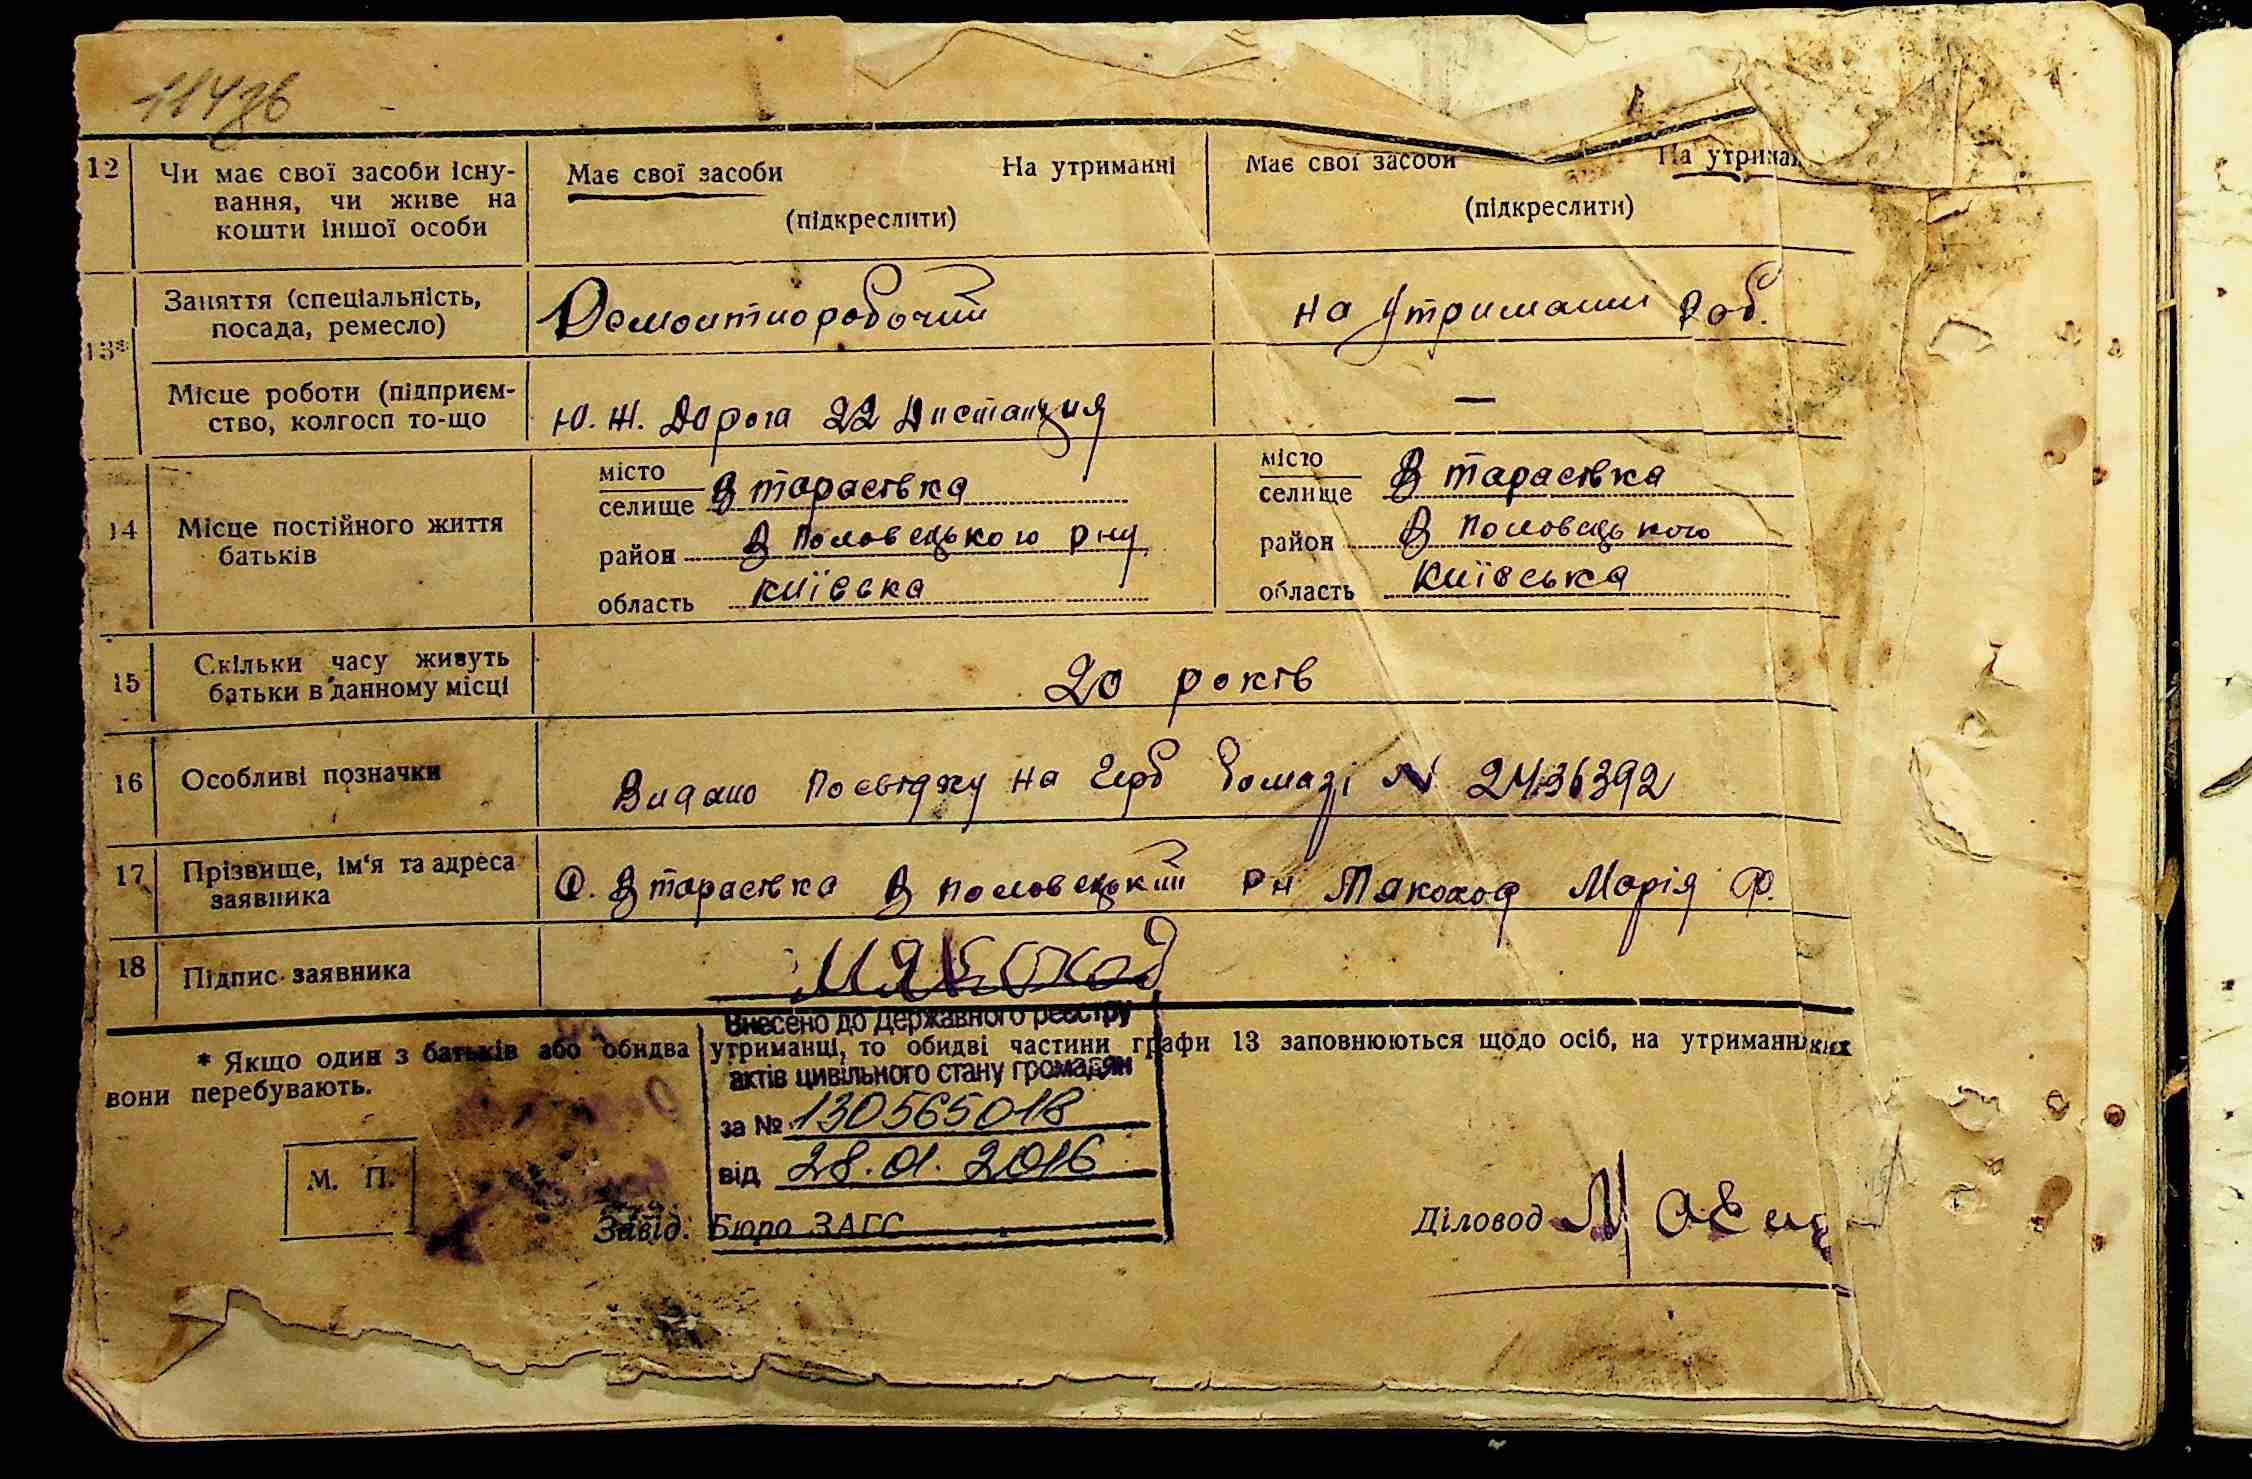 12 Чи має свої засоби існу-
вання, чи живе на
кошти іншої особи
Має свої засоби На утриманні
(підкреслити)
Має свої засоби На утриман
(підкреслити)
13* Заняття (спеціальність,
посада, ремесло)
Ремонтноробочий
на утриманні роб.
Місце роботи (підприєм-
ство, колгосп то-що
Ю. Ж. Дорога 22 Дистанция
—
14 Місце постійного життя
батьків
місто
селище В тарасівка
район В Половецького рну
область київська
місто
селище В тарасівка
район В Половецького
область Київська
15 Скільки часу живуть
батьки в данному місці
20 років
16 Особливі позначки
Видано посвідку на герб бомазі N 2436392
17 Прізвище, ім'я та адреса
заявника
с. В тарасівка В половецький рн Мякоход Марія Ф.
18 Підпис заявника
Мякоход
* Якщо один з батьків або обидва утриманці, то обидві частини графи 13 заповнюються щодо осіб, на утриманні яких
вони перебувають.
Внесено до Державного реєстру
актів цивільного стану громадян
за № 130565018
від 28.01.2016
М. П.
Завід. Бюро ЗАГС
Діловод